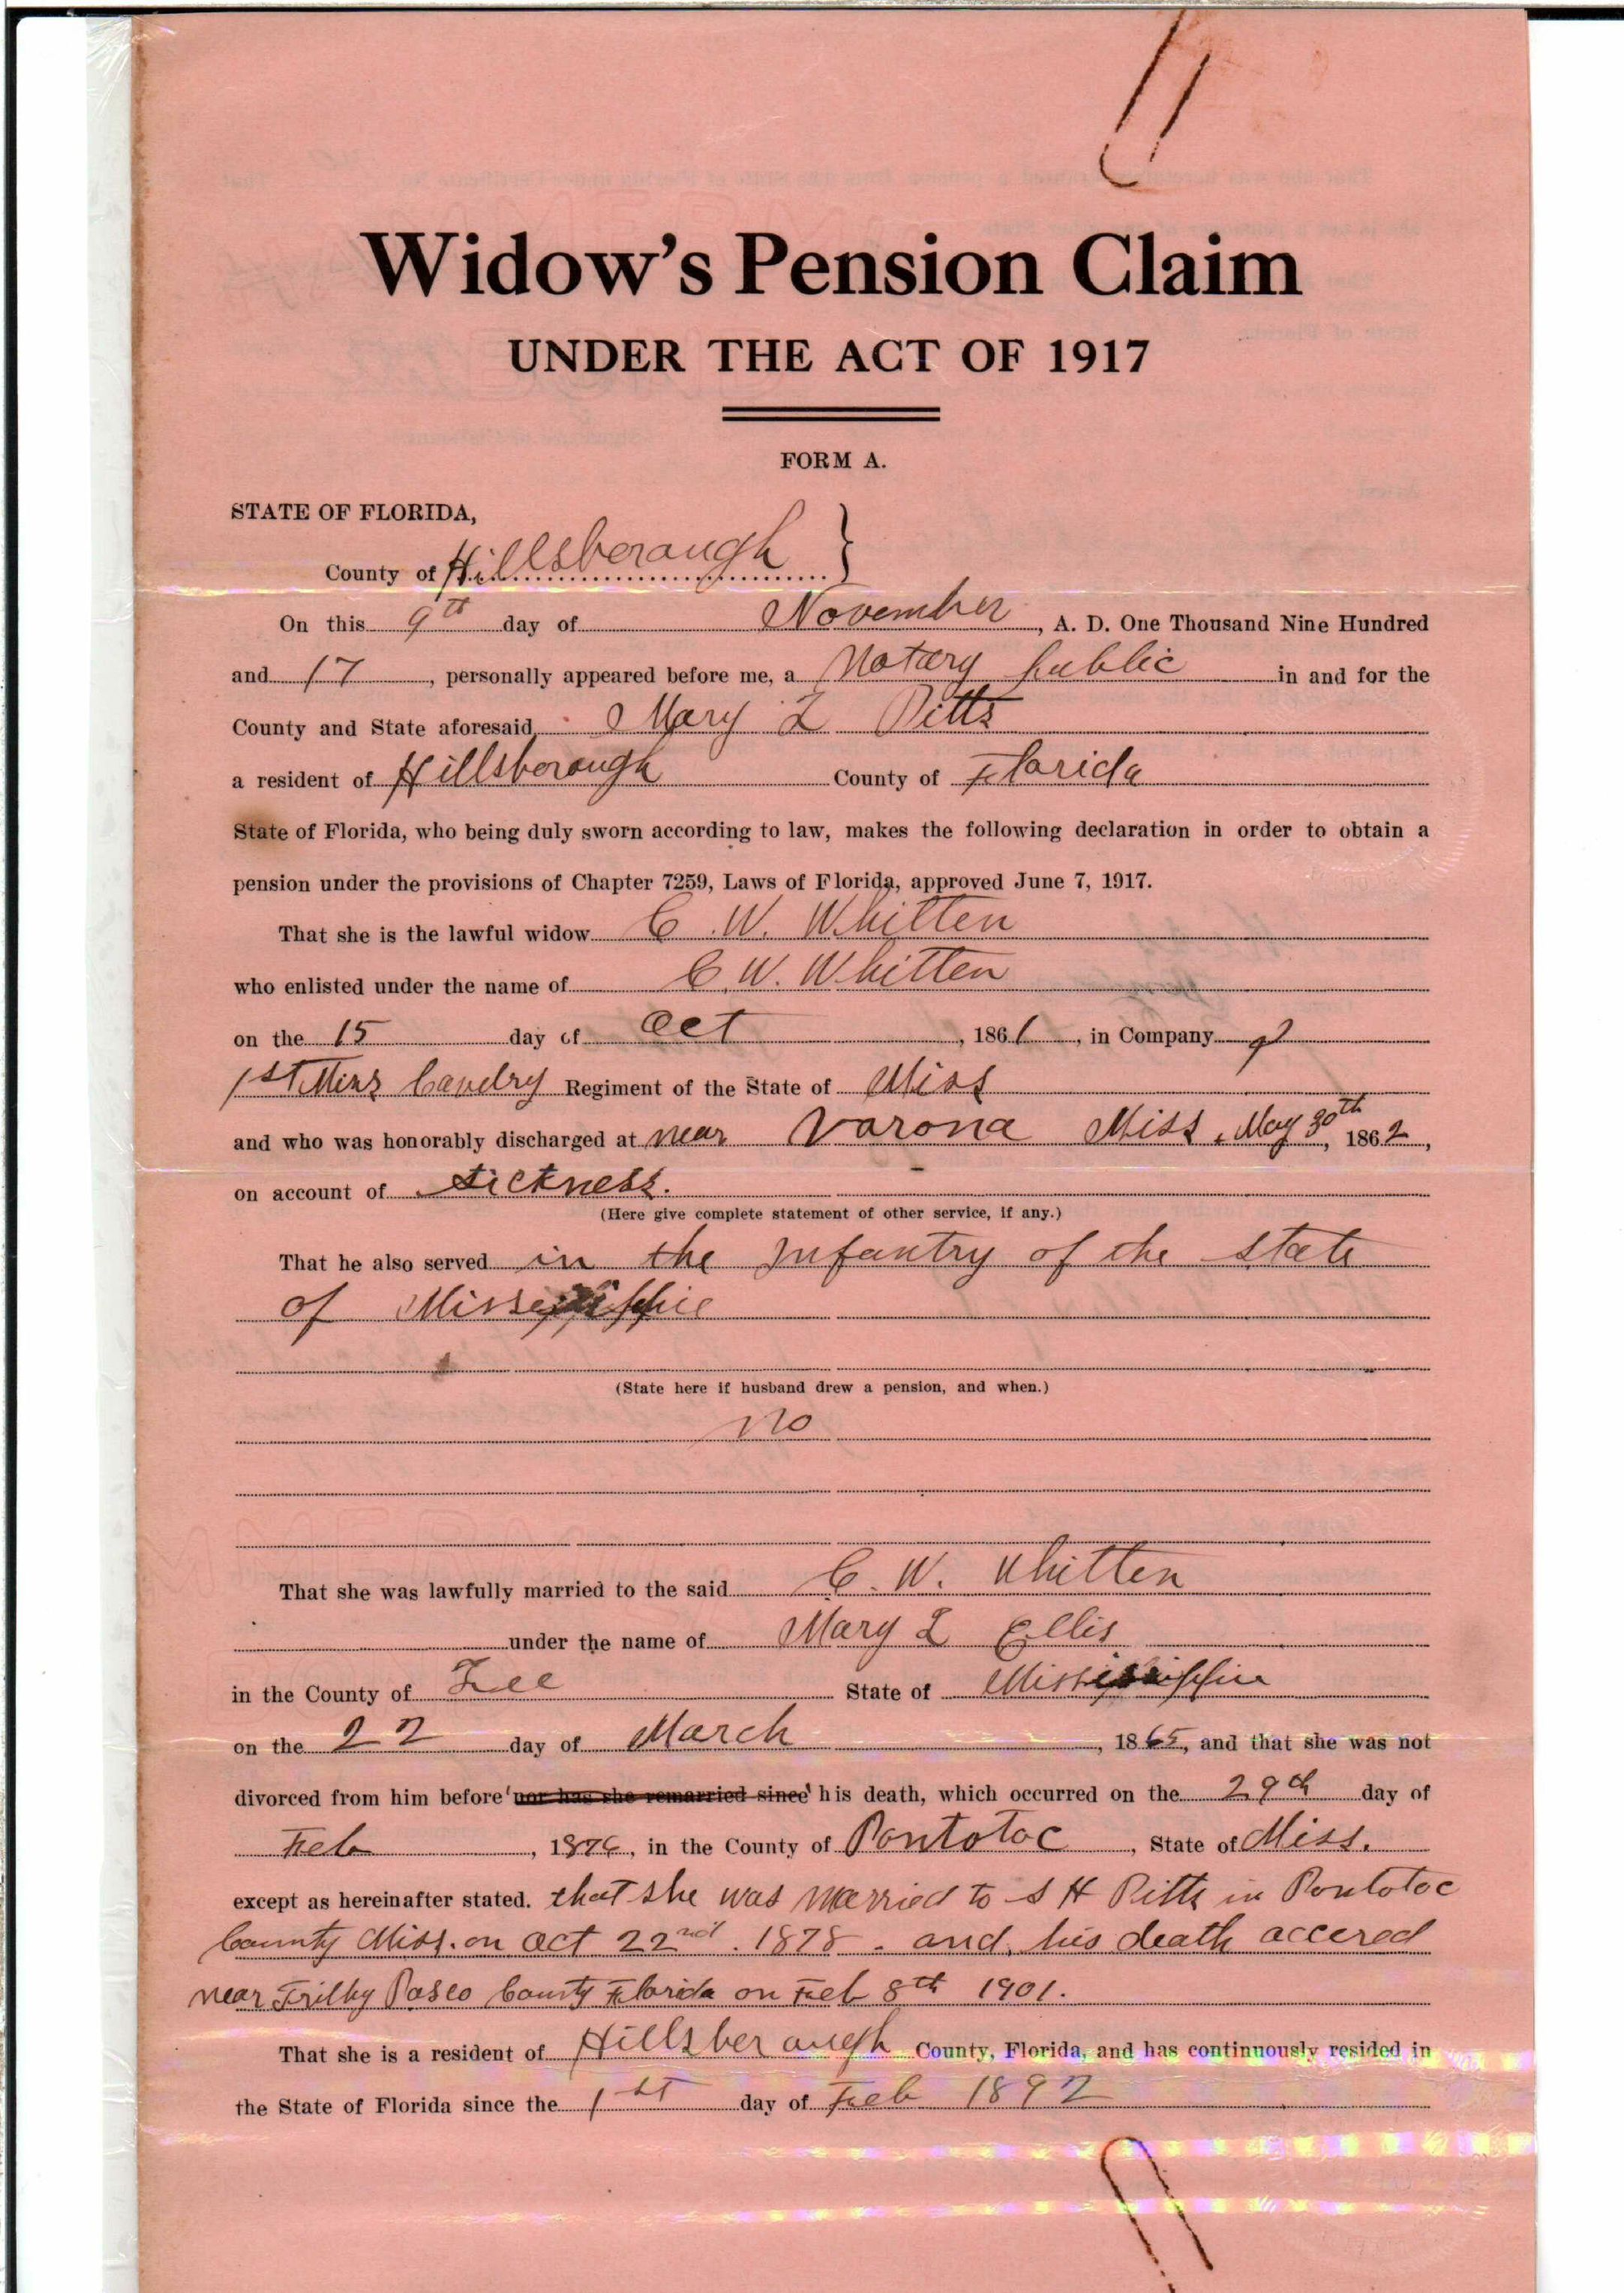 Widow's Pension Claim
UNDER THE ACT OF 1917
FORM A.
STATE OF FLORIDA,
County of Hillsborough }
On this 9th day of November, A. D. One Thousand Nine Hundred
and 17, personally appeared before me, a Notary Public in and for the
County and State aforesaid, Mary L Pitts
a resident of Hillsborough County of Florida
State of Florida, who being duly sworn according to law, makes the following declaration in order to obtain a
pension under the provisions of Chapter 7259, Laws of Florida, approved June 7, 1917.
That she is the lawful widow C. W. Whitten
who enlisted under the name of C. W. Whitten
on the 15 day of Oct, 1861, in Company
1st Miss Cavelry Regiment of the State of Miss
and who was honorably discharged at near Varona Miss, May 30th, 1862,
on account of sickness.
(Here give complete statement of other service, if any.)
That he also served in the Infantry of the State
of Mississippie
(State here if husband drew a pension, and when.)
no
That she was lawfully married to the said C. W. Whitten
under the name of Mary L Ellis
in the County of Lee State of Mississippie
on the 22 day of March, 1865, and that she was not
divorced from him before 'nor has she remarried since' his death, which occurred on the 29th day of
Feb, 1876, in the County of Pontotoc, State of Miss.
except as hereinafter stated. that she was married to S H Pitts in Pontotoc
County Miss. on Oct 22nd. 1878. and his death accered
near Trilby Pasco County Florida on Feb 8th 1901.
That she is a resident of Hillsberough County, Florida, and has continuously resided in
the State of Florida since the 1st day of Feb 1892